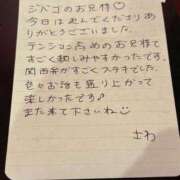 ジバゴのお兄様♡
今日は選んでくださりあ
りがとうございました。
テンション高めのお兄様で
すごく話しみやすかったです。
関西弁がすごくステキでした。
色々お話も盛り上がって
楽しかったです♪
また来て下さいね○
さわ